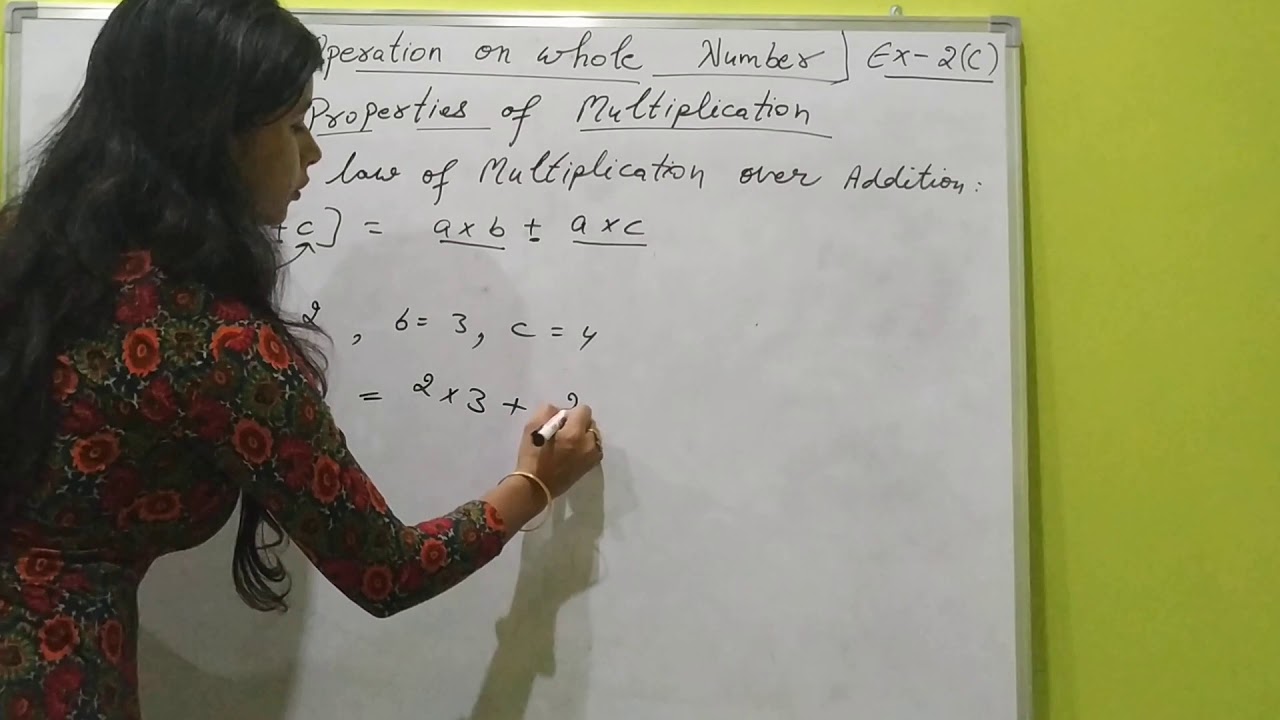 Operation on whole Number] Ex-2(C)
Properties of Multiplication
law of Multiplication over Addition:
+c] = a×b + a×c
2, b=3, c=4
= 2×3 + 2